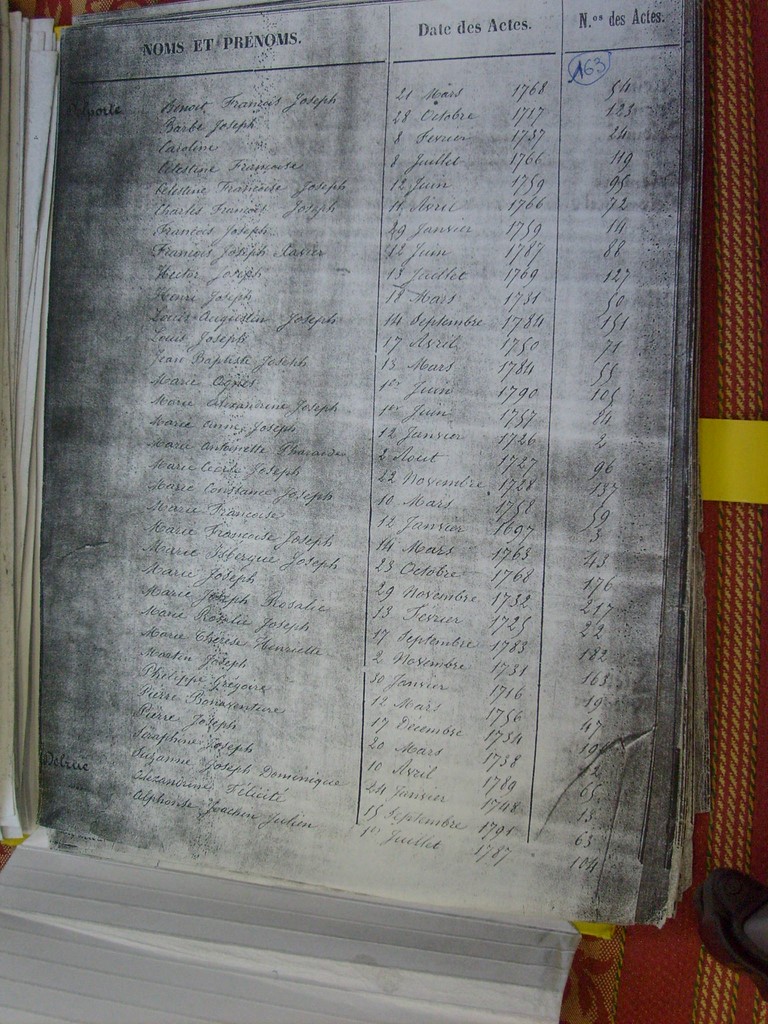 NOMS ET PRÉNOMS. Date des Actes. N.os des Actes.
163
Delporte Benoit François Joseph 21 Mars 1768 54
Barbe Joseph 28 Octobre 1737 123
Caroline 8 Fevrier 1737 24
Celestine Françoise 8 Juillet 1766 119
Celestine Françoise Joseph 12 Juin 1759 95
Charles François Joseph 11 Avril 1766 72
François Joseph 29 Janvier 1759 14
François Joseph Xavier 12 Juin 1787 88
Hector Joseph 13 Juillet 1769 127
Henri Joseph 18 Mars 1731 50
Louis Augustin Joseph 14 Septembre 1784 151
Louis Joseph 17 Avril 1750 71
Jean Baptiste Joseph 15 Mars 1784 55
Marie Agnès 1er Juin 1790 105
Marie Alexandrine Joseph 1er Juin 1757 84
Marie Anne Joseph 12 Janvier 1726 2
Marie Antoinette Pharaïlde 2 Aout 1727 96
Marie Cécile Joseph 22 Novembre 1728 137
Marie Constance Joseph 10 Mars 1758 59
Marie Françoise 12 Janvier 1697 3
Marie Françoise Joseph 14 Mars 1763 43
Marie Isbergue Joseph 23 Octobre 1768 176
Marie Joseph 29 Novembre 1732 217
Marie Joseph Rosalie 13 Fevrier 1725 22
Marie Rosalie Joseph 17 Septembre 1783 182
Marie Thérèse Henriette 2 Novembre 1731 163
Martin Joseph 30 Janvier 1716 19
Philippe Grégoire 12 Mars 1756 47
Pierre Bonaventure 17 Décembre 1734
Pierre Joseph 20 Mars 1738 72
Séraphine Joseph 10 Avril 1789 65
Suzanne Joseph Dominique 24 Janvier 1748 13
Delrue Alexandrine Félicité 15 Septembre 1791 63
Alphonse Joachim Julien 1er Juillet 1787 104